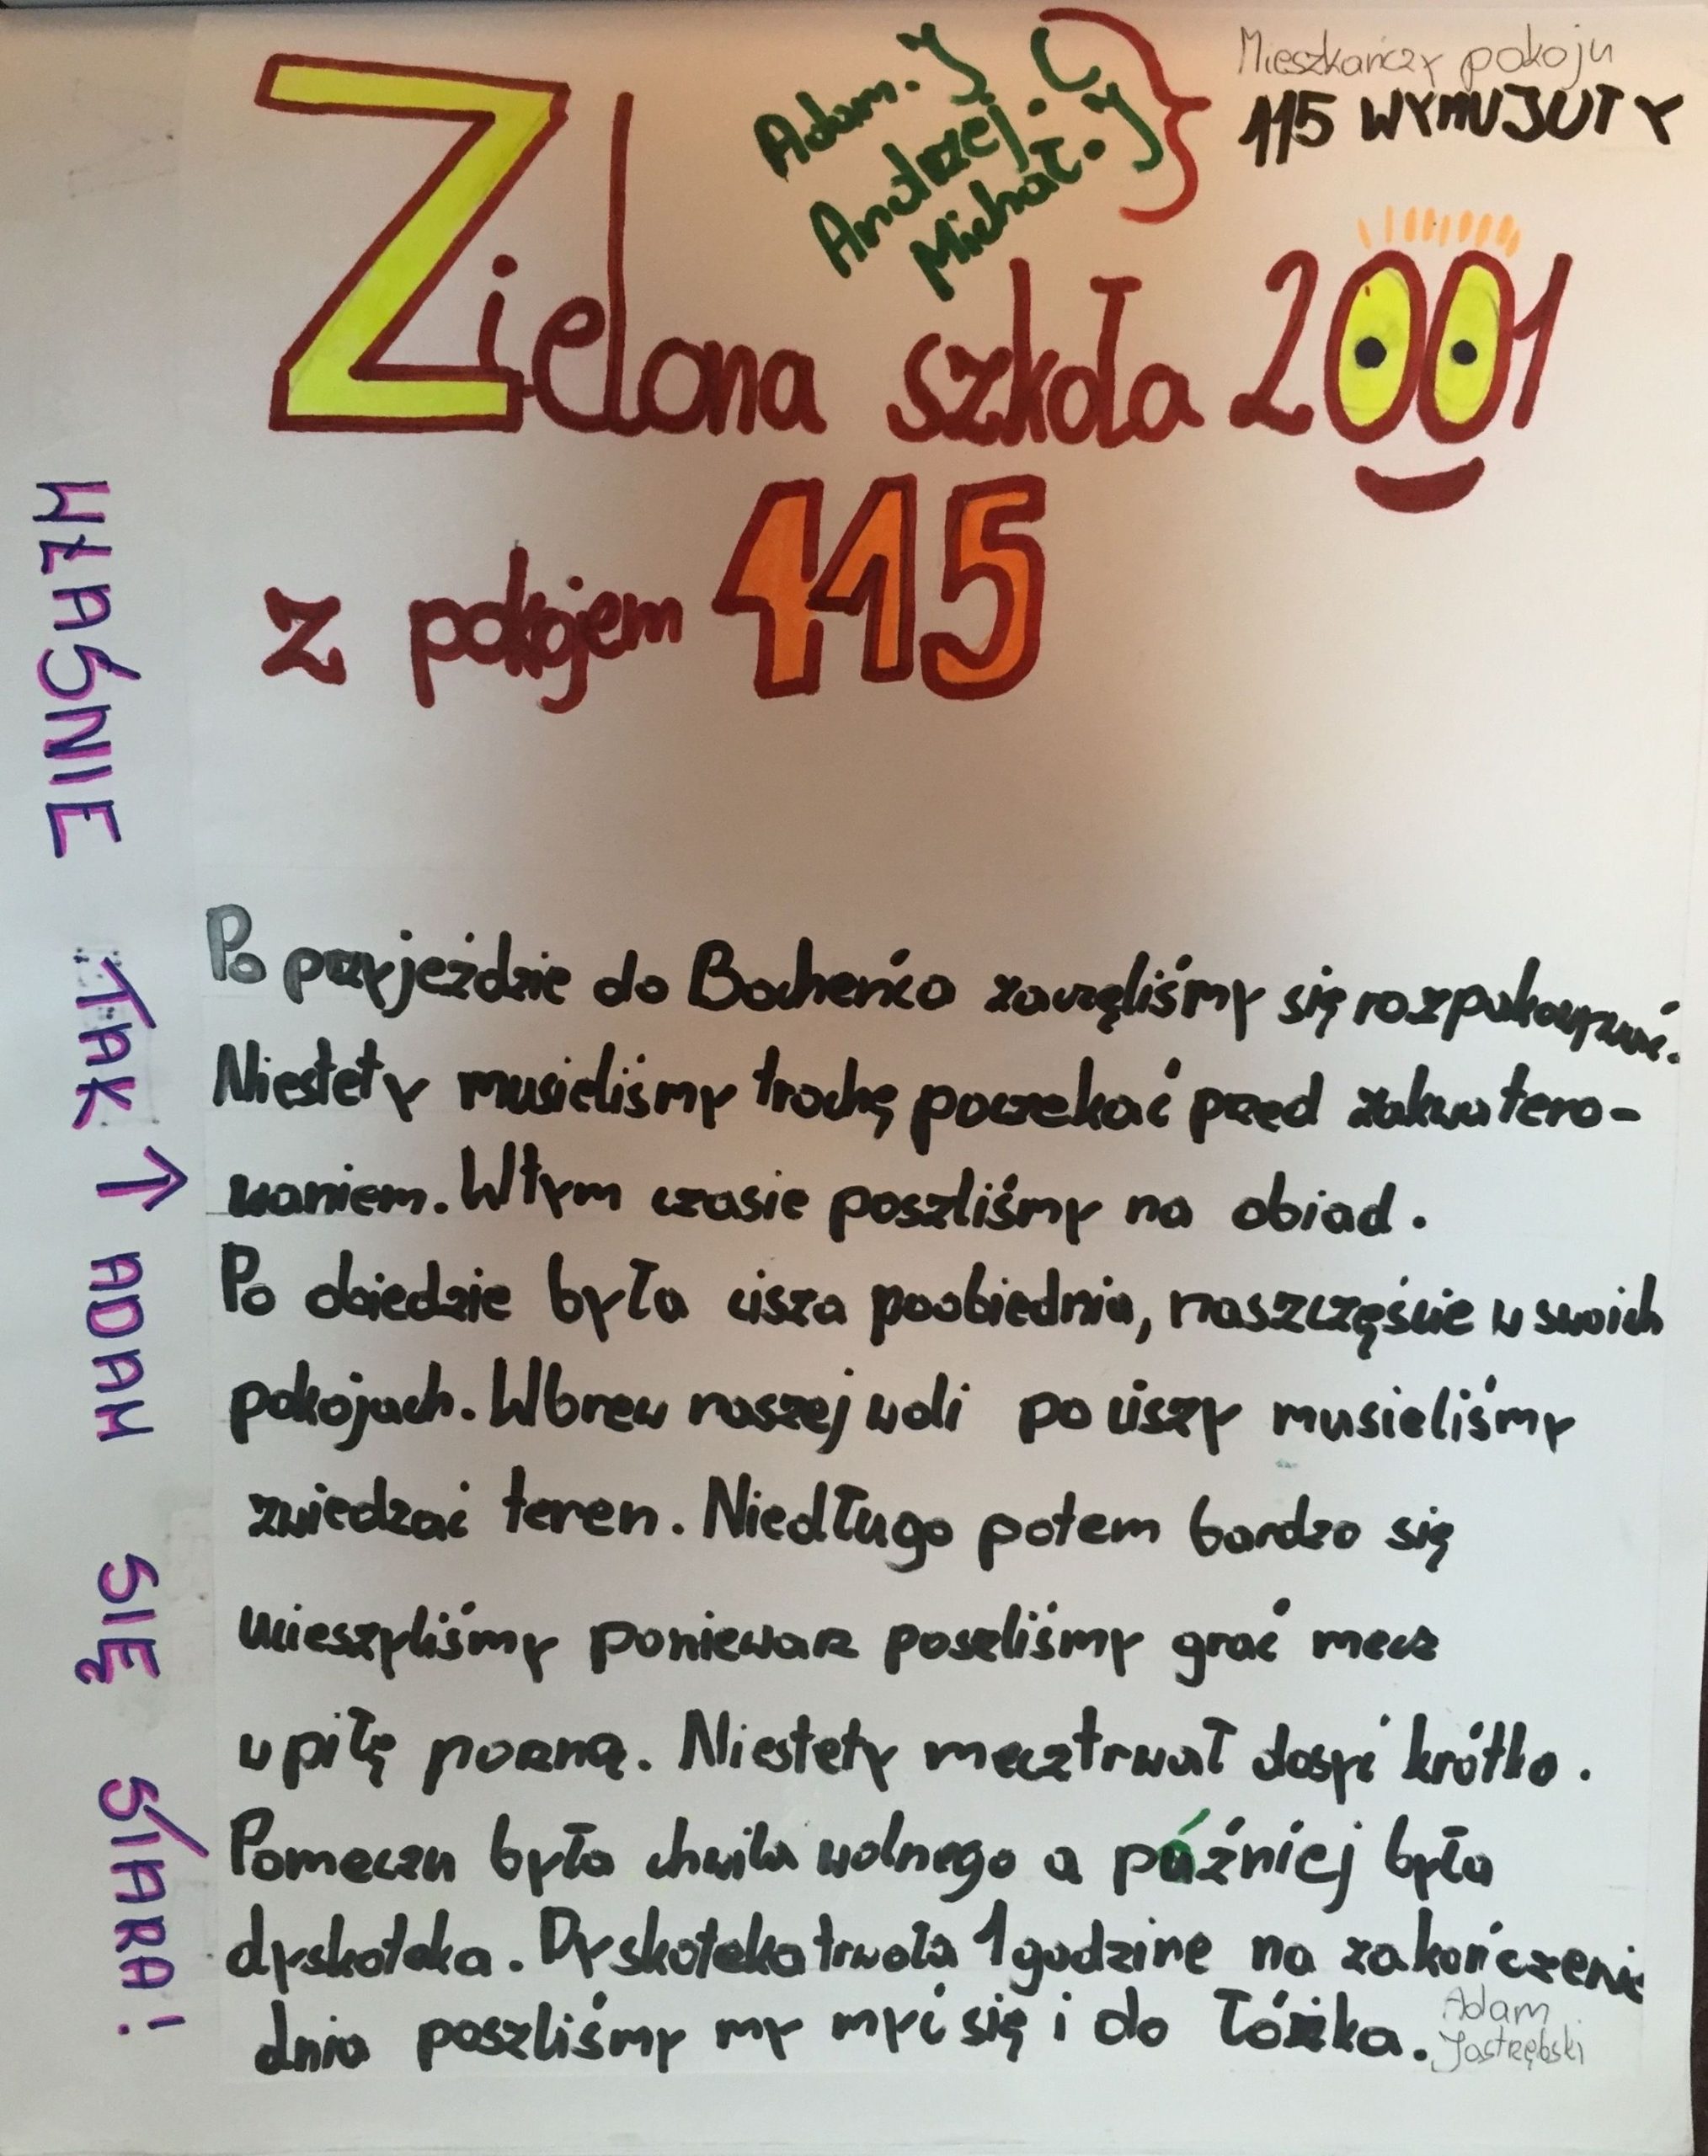 Adam. J
Andrzej. C
Michał. J
Mieszkańczy pokoju
115 WYMUJUTY
Zielona szkoła 2001
z pokojem 115
WŁAŚNIE TAK ↑ ADAM SIĘ SIARA!
Po przyjeździe do Bocheńca zaczęliśmy się rozpakowywać.
Niestety musieliśmy trochę poczekać przed zakwatero-
waniem. Wtym czasie poszliśmy na obiad.
Po obiedzie była cisza poobiednia, naszczęście w swoich
pokojach. Wbrew naszej woli po ciszy musieliśmy
zwiedzać teren. Niedługo potem bardzo się
ucieszyliśmy poniewarz poszliśmy grać mecz
w piłę nożną. Niestety mecz trwał dosyć krótko.
Pomeczu była chwila wolnego a później była
dyskoteka. Dyskoteka trwała 1 godzine na zakończenie
dnia poszliśmy my myć się i do łóżka.
Adam
Jastrzębski